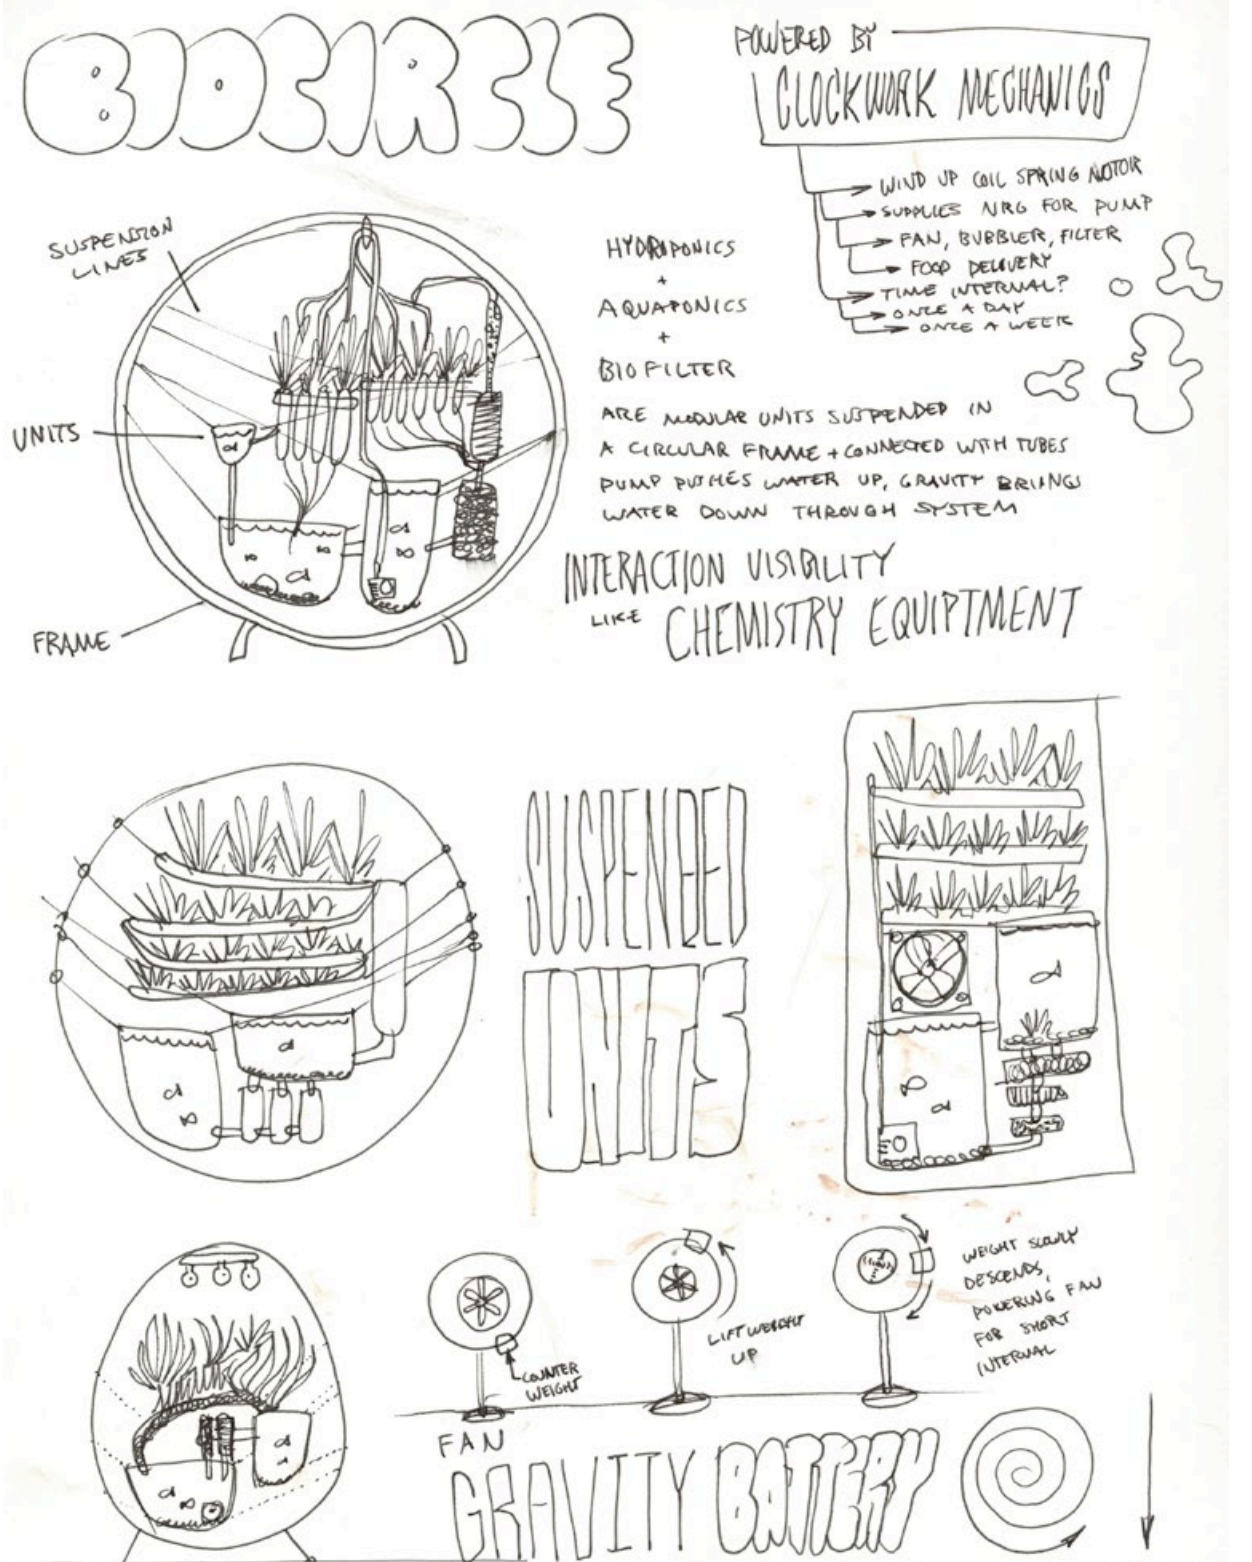 BIOCIRCLE
POWERED BY
CLOCKWORK MECHANICS
WIND UP COIL SPRING MOTOR
SUPPLIES NRG FOR PUMP
FAN, BUBBLER, FILTER
FOOD DELIVERY
TIME INTERNAL?
ONCE A DAY
ONCE A WEEK
SUSPENSION
LINES
UNITS
FRAME
HYDROPONICS
+
AQUAPONICS
+
BIOFILTER
ARE MODULAR UNITS SUSPENDED IN
A CIRCULAR FRAME + CONNECTED WITH TUBES
PUMP PUSHES WATER UP, GRAVITY BRIINGS
WATER DOWN THROUGH SYSTEM
INTERACTION VISIBILITY
LIKE CHEMISTRY EQUIPTMENT
SUSPENDED
UNITS
COUNTER
WEIGHT
LIFT WEIGHT
UP
WEIGHT SLOWLY
DESCENDS,
POWERING FAN
FOR SHORT
INTERNAL
FAN
GRAVITY BATTERY